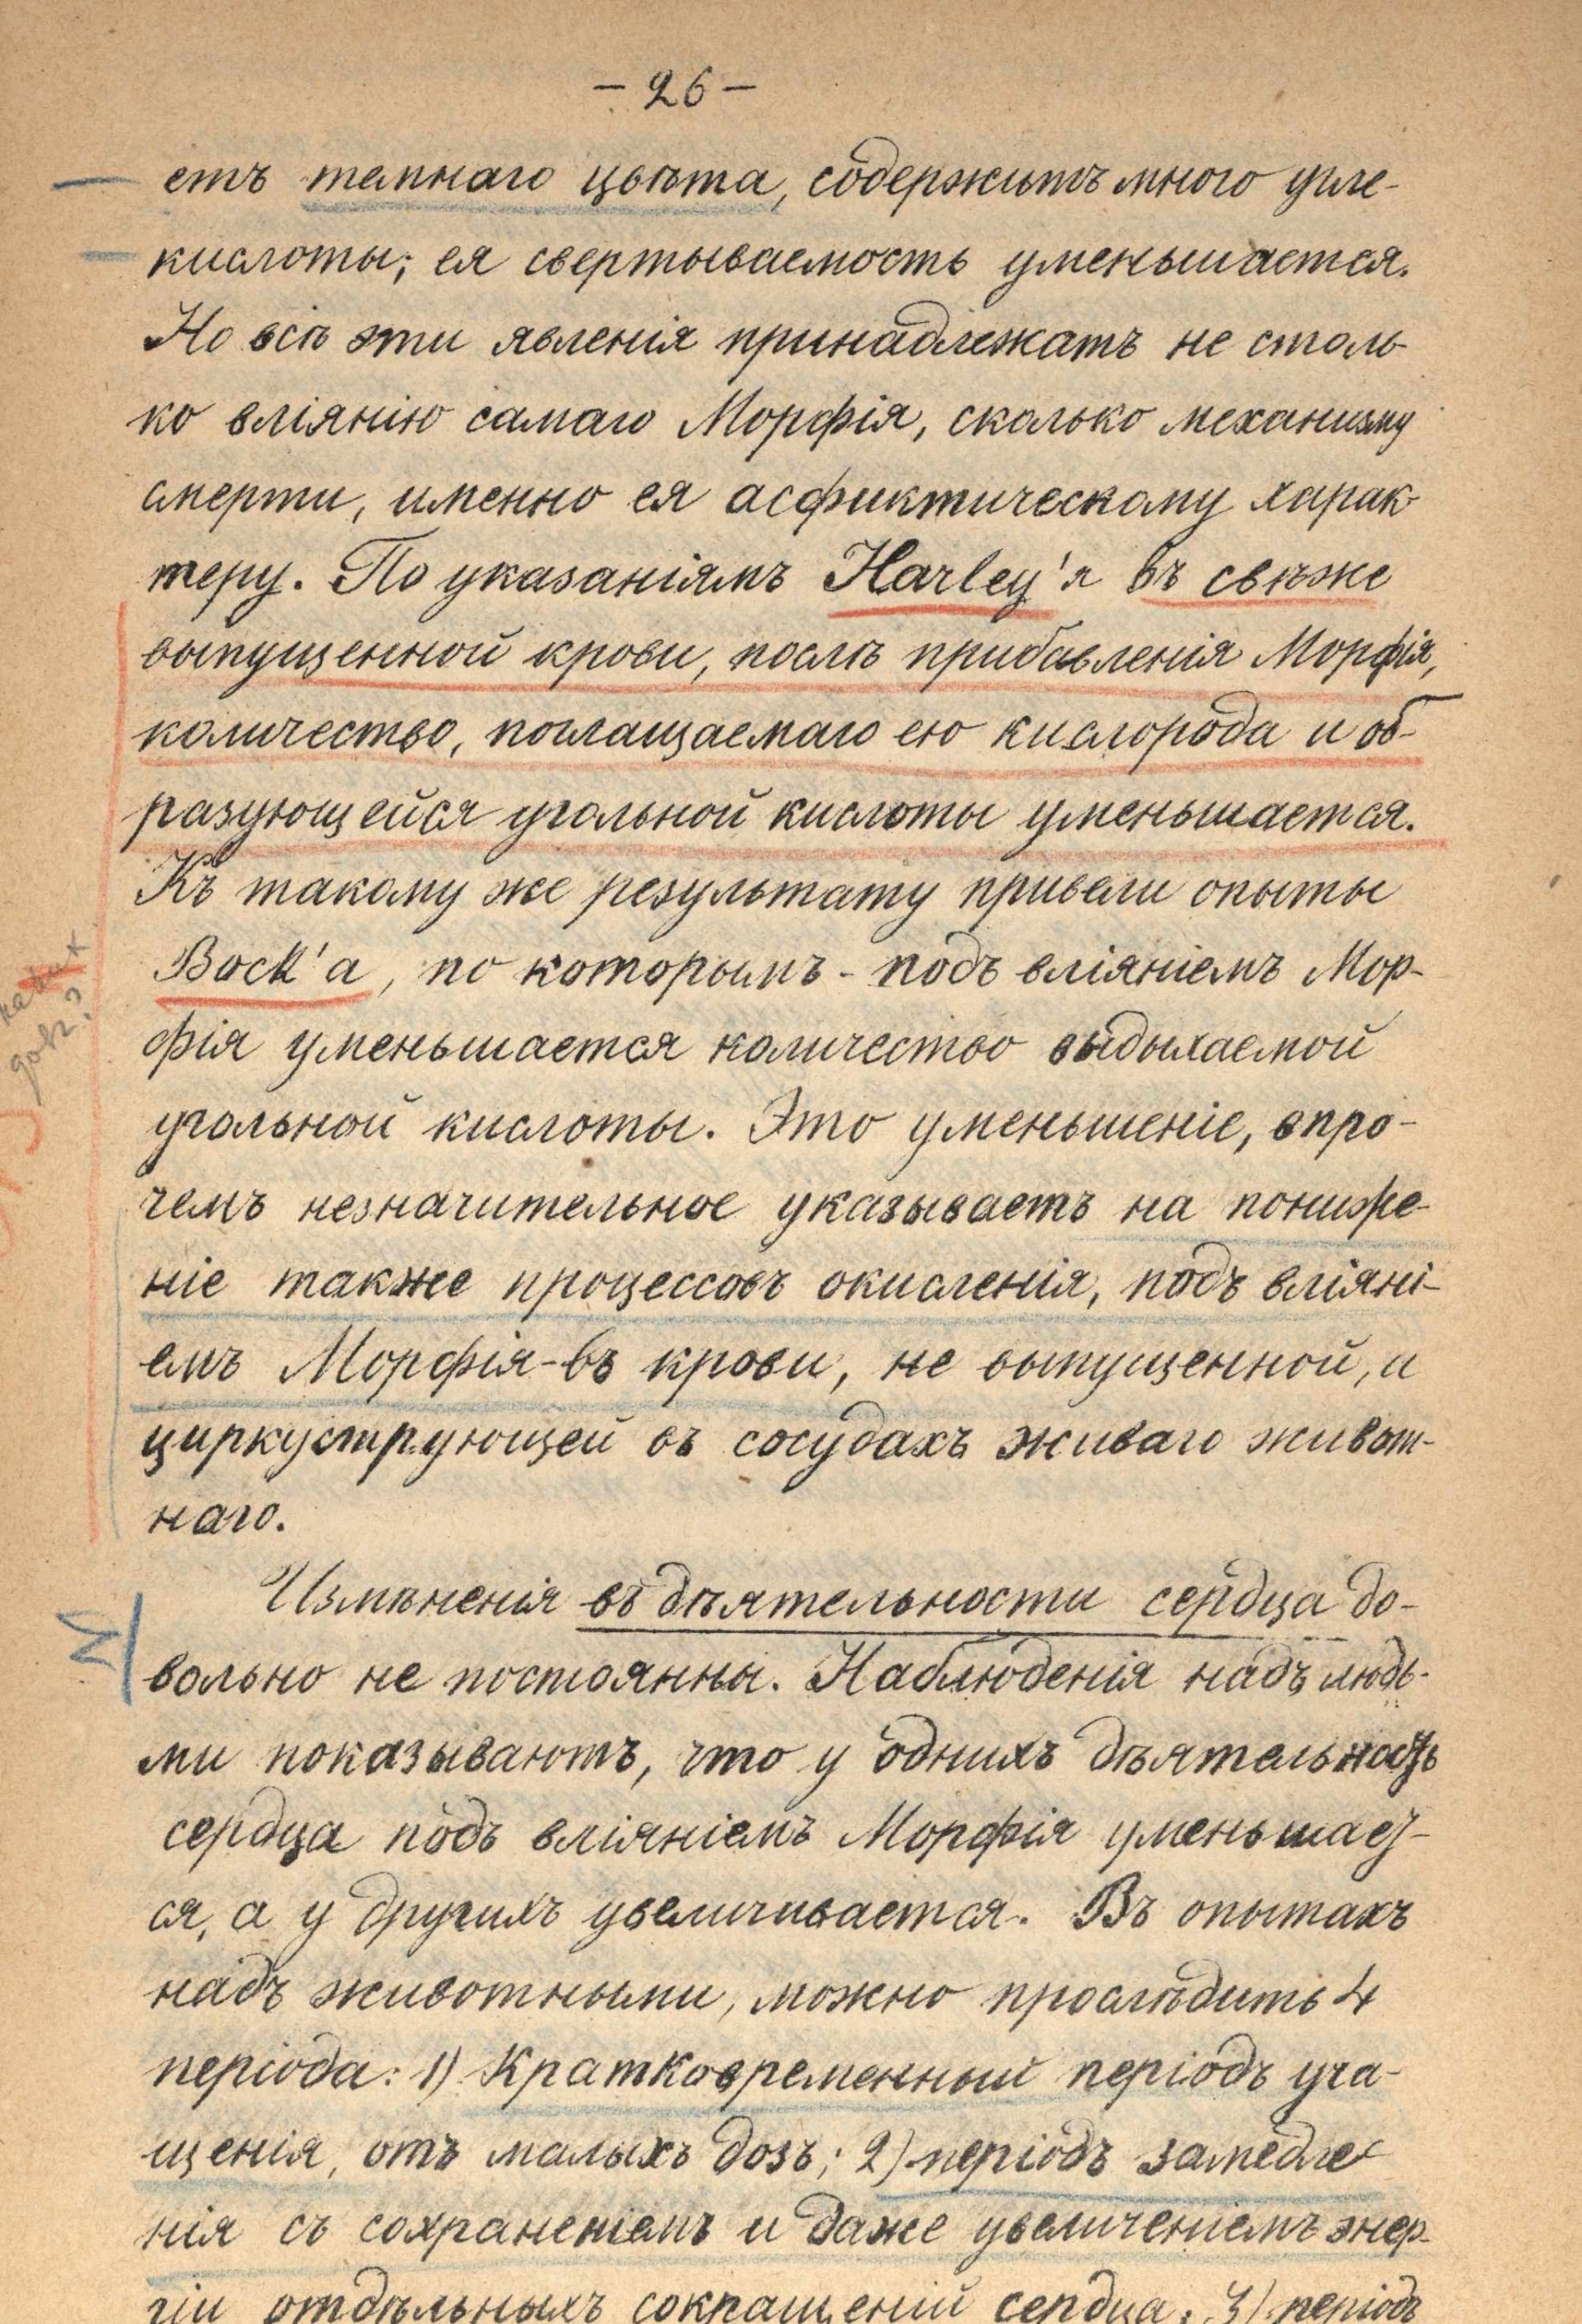 - 26 -
етъ темнаго цвѣта, содержитъ много угле-
кислоты; ея свертываемость уменьшается.
Но всѣ эти явленія принадлежатъ не столь-
ко вліянію самаго Морфія, сколько механизму
смерти, именно ея асфиктическому харак-
теру. По указаніямъ Harley'я въ свѣже
выпущенной крови, послѣ прибавленія Морфія,
количество, поглащаемаго ею кислорода и об-
разующейся угольной кислоты уменьшается.
Къ такому же результату привели опыты
Bock'а, по которымъ - подъ вліяніемъ Мор-
фія уменьшается количество выдыхаемой
угольной кислоты. Это уменьшеніе, впро-
чемъ незначительное указываетъ на пониже-
ніе также процессовъ окисленія, подъ вліяні-
емъ Морфія - въ крови, не выпущенной, и
циркулирующей въ сосудахъ живаго живот-
наго.
Измѣненія въ дѣятельности сердца до-
вольно не постоянны. Наблюденія надъ людь-
ми показываютъ, что у однихъ дѣятельность
сердца подъ вліяніемъ Морфія уменьшает-
ся, а у другихъ увеличивается. Въ опытахъ
надъ животными, можно прослѣдить 4
періода: 1) Кратковременный періодъ уча-
щенія, отъ малыхъ дозъ; 2) періодъ замедле-
нія съ сохраненіемъ и даже увеличеніемъ энер-
гіи отдѣльныхъ сокращеній сердца; 3) періодъ